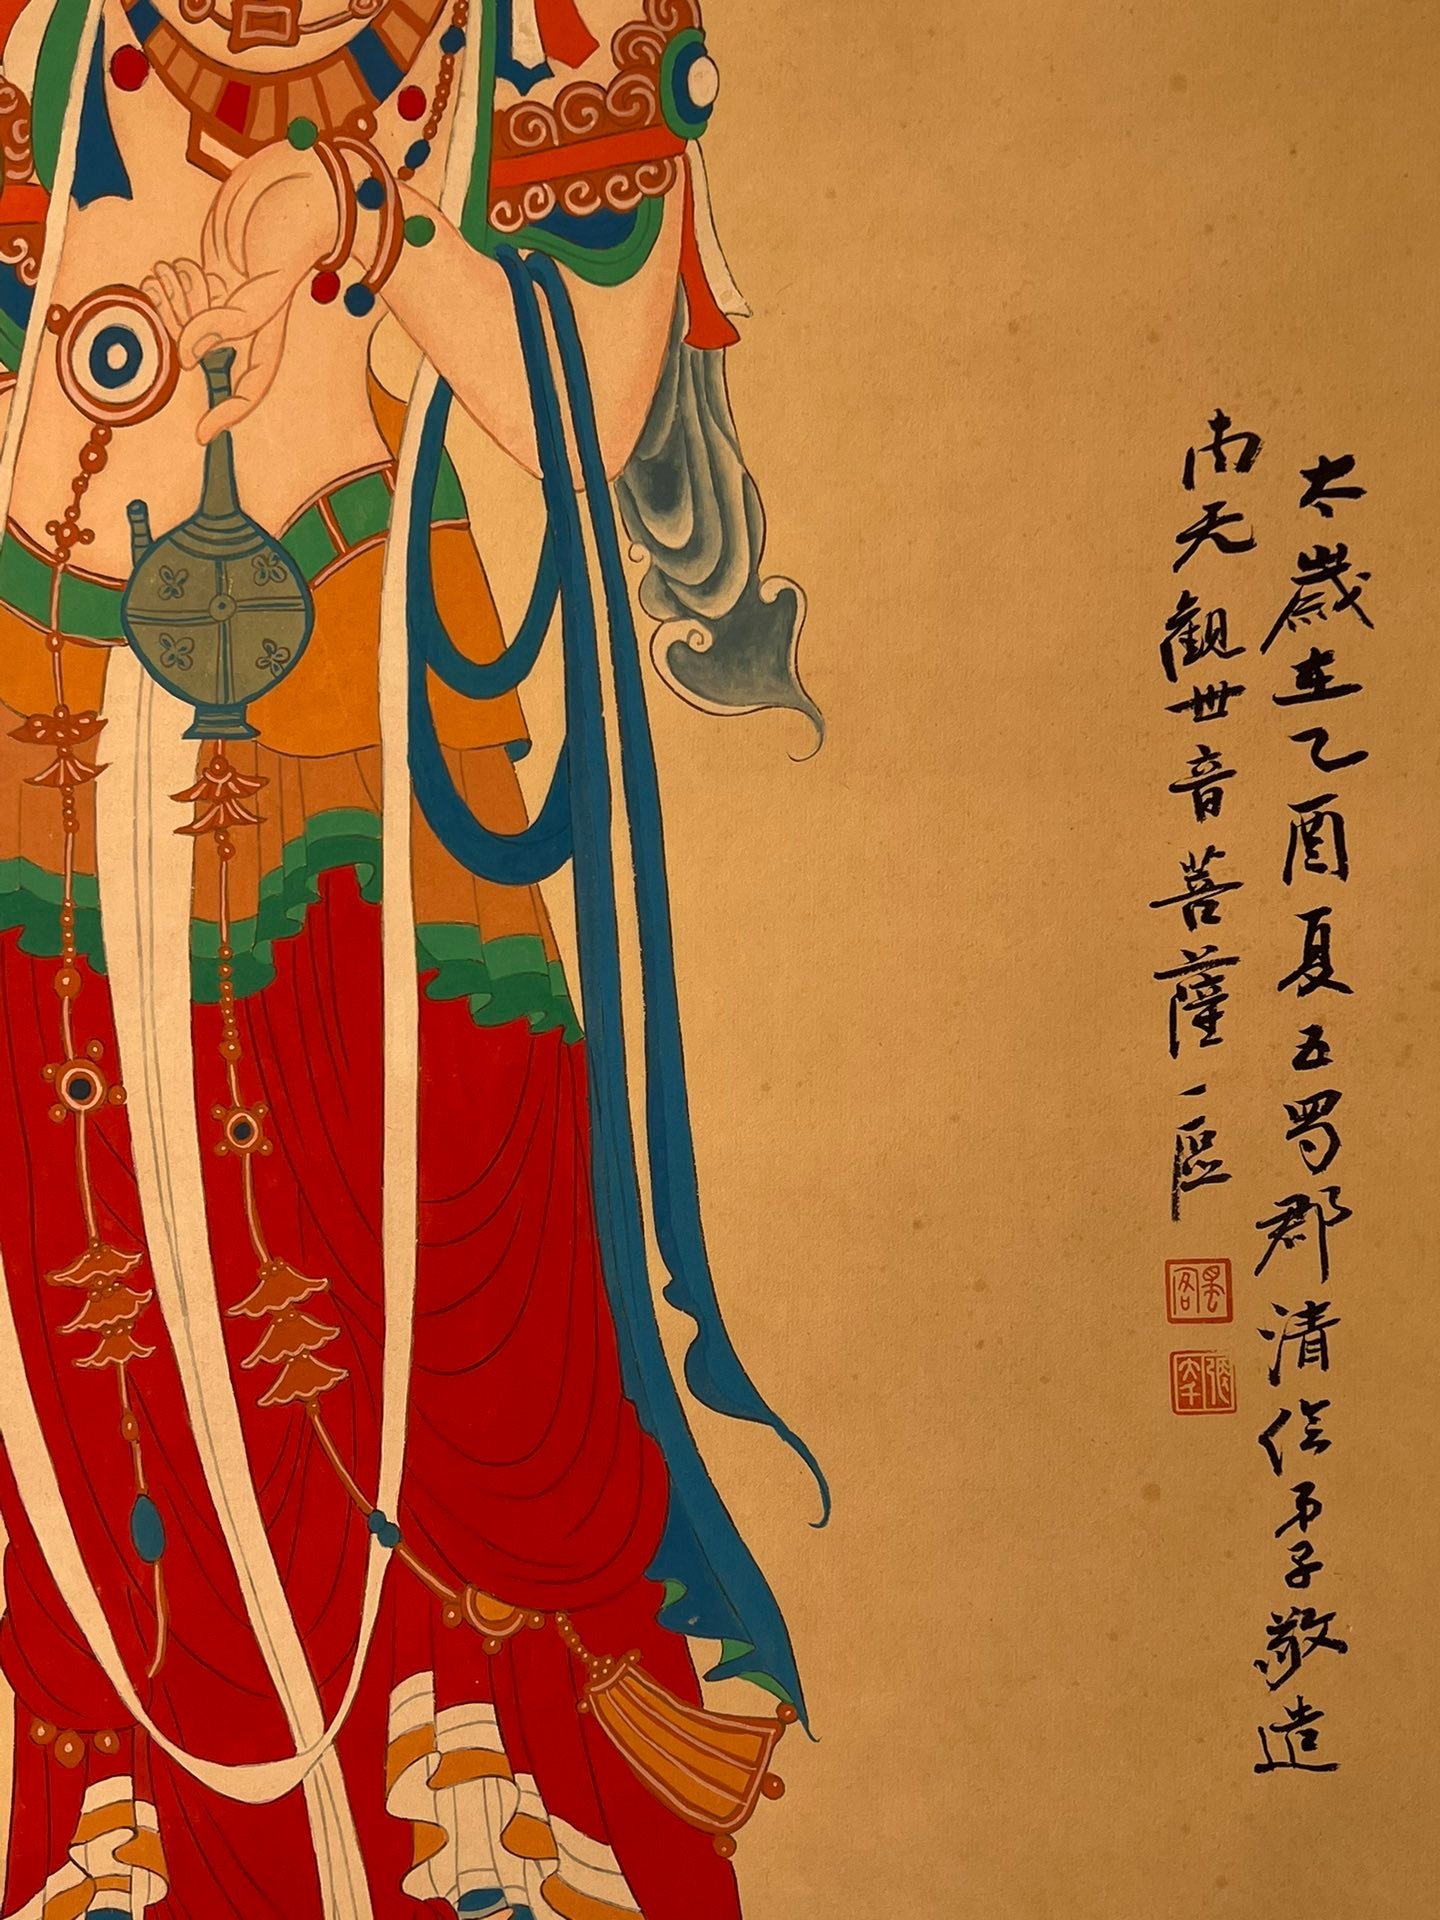 太歲在乙酉夏五蜀郡清信弟子敬造
南无觀世音菩薩一區